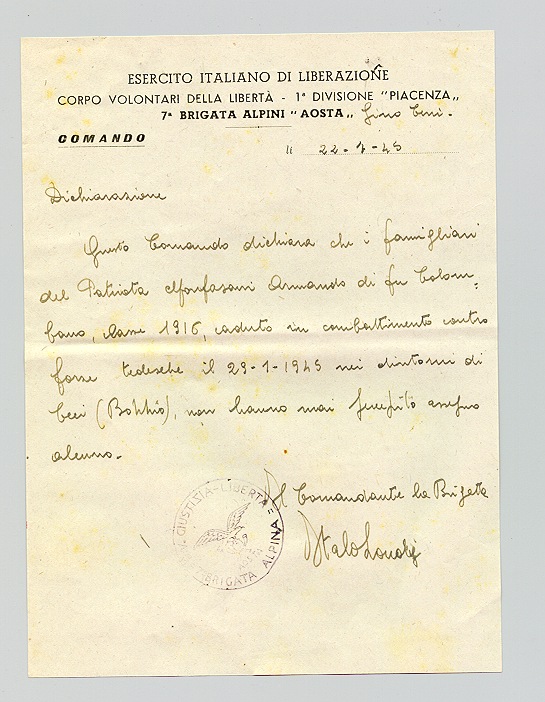 ESERCITO ITALIANO DI LIBERAZIONE
CORPO VOLONTARI DELLA LIBERTÀ - 1ª DIVISIONE "PIACENZA„
7ª BRIGATA ALPINI "AOSTA„ Gino Cerri.
COMANDO
li 22-7-45
Dichiarazione
Questo Comando dichiara che i famigliari
del Patriota Monfasani Armando di fu Colom=
bano, classe 1916, caduto in combattimento contro
forse tedesche il 29-1-1945 nei dintorni di
Ceci (Bobbio), non hanno mai percepito assegno
alcuno.
Il Comandante la Brigata
Italo Londei
GIUSTIZIA - LIBERTÀ
BRIGATA ALPINA